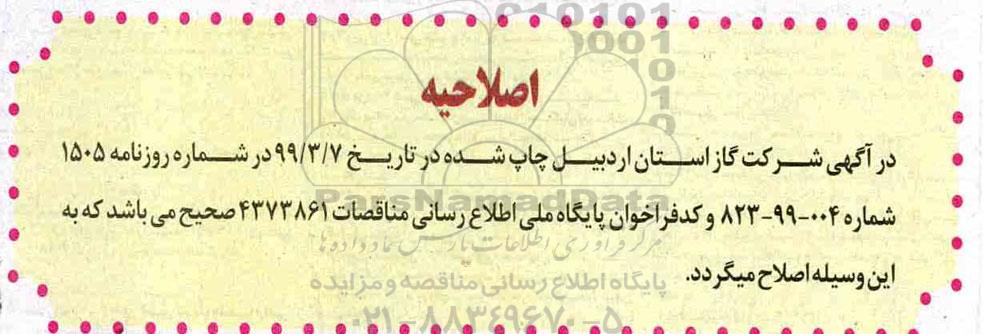 اصلاحیه
در آگهی شرکت گاز استان اردبیل چاپ شده در تاریخ ۹۹/۳/۷ در شماره روزنامه ۱۵۰۵
شماره ۰۰۴-۹۹-۸۲۳ و کدفراخوان پایگاه ملی اطلاع رسانی مناقصات ۴۳۷۳۸۶۱ صحیح می باشد که به
این وسیله اصلاح میگردد.
ParsNamadData
مرکز فرآوری اطلاعات پارس نماد داده ها
پایگاه اطلاع رسانی مناقصه و مزایده
۰۲۱-۸۸۳۴۹۶۷۰-۵